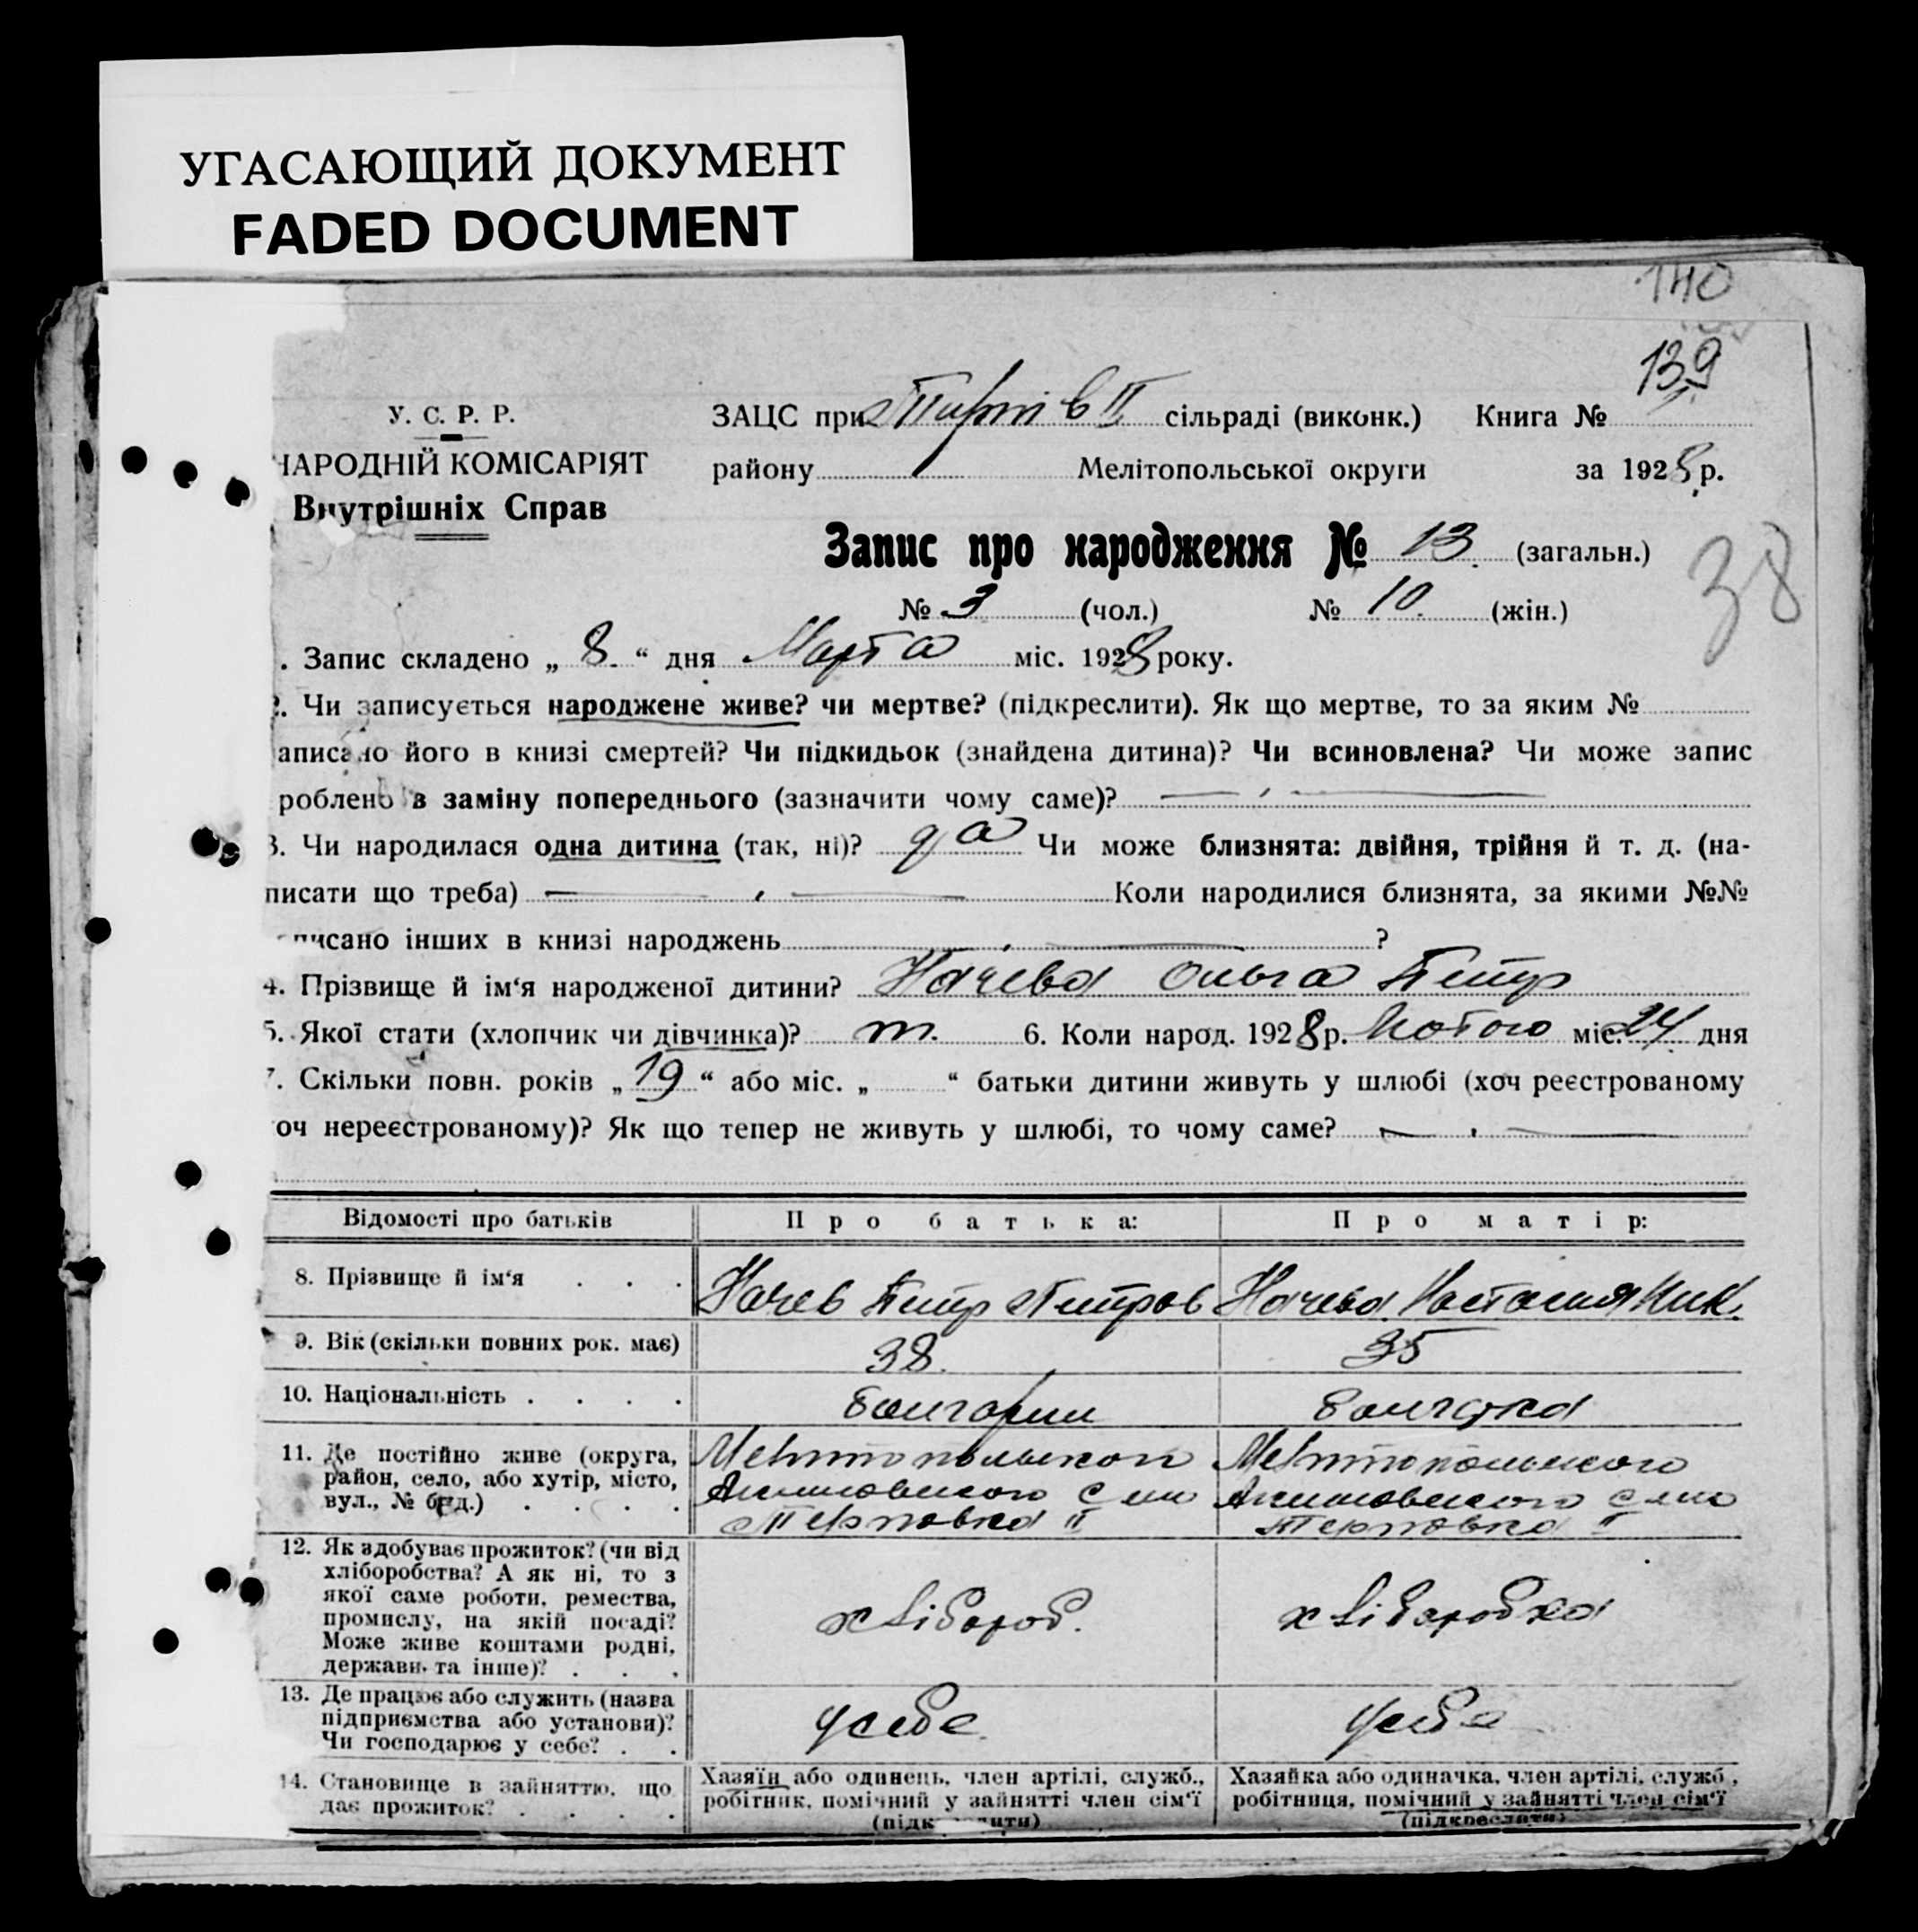 УГАСАЮЩИЙ ДОКУМЕНТ
FADED DOCUMENT
140
139
У. С. Р. Р.
НАРОДНІЙ КОМІСАРІЯТ
Внутрішніх Справ
ЗАЦС при II сільраді (виконк.) Книга №
району Мелітопольської округи за 1928 р.
Запис про народження № 13. (загальн.)
38
№ 3 (чол.) № 10. (жін.)
. Запис складено „ 8. “ дня Марта міс. 1928 року.
2. Чи записується народжене живе? чи мертве? (підкреслити). Як що мертве, то за яким №
аписано його в книзі смертей? Чи підкидьок (знайдена дитина)? Чи всиновлена? Чи може запис
роблено в заміну попереднього (зазначити чому саме)?
3. Чи народилася одна дитина (так, ні)? да Чи може близнята: двійня, трійня й т. д. (на-
писати що треба) Коли народилися близнята, за якими №№
писано інших в книзі народжень ?
4. Прізвище й ім‘я народженої дитини? Начева Ольга Петр
5. Якої стати (хлопчик чи дівчинка)? 6. Коли народ. 1928 р. Лютого міс. 24 дня
7. Скільки повн. років „ 19 “ або міс. „ “ батьки дитини живуть у шлюбі (хоч реєстрованому
оч нереєстрованому)? Як що тепер не живуть у шлюбі, то чому саме?
Відомості про батьків Про батька: Про матір:
8. Прізвище й ім‘я . . . Начев Петр Петров Начева Настасия Ник.
9. Вік (скільки повних рок. має) 38. 35
10. Національність . . . . болгарин болгарка
11. Де постійно живе (округа,
район, село, або хутір, місто,
вул., № буд.) . . . .
Мелитопольскои
Акимовского село
Терновка II
Мелитопольского
Акимовского село
Терновка II
12. Як здобуває прожиток? (чи від
хліборобства? А як ні, то з
якої саме роботи, ремества,
промислу, на якій посаді?
Може живе коштами родні,
держави та інше)? . . .
хлібороб.
хліборобка
13. Де працює або служить (назва
підприємства або установи)?
Чи господарює у себе? . .
усебе
усебе
14. Становище в зайняттю, що
дає прожиток? . . . .
Хазяїн або одинець, член артілі, служб.,
робітник, помічний у зайнятті член сім‘ї
Хазяйка або одиначка, член артілі, служб.,
робітниця, помічний у зайнятті член сім‘ї
(підкреслити)